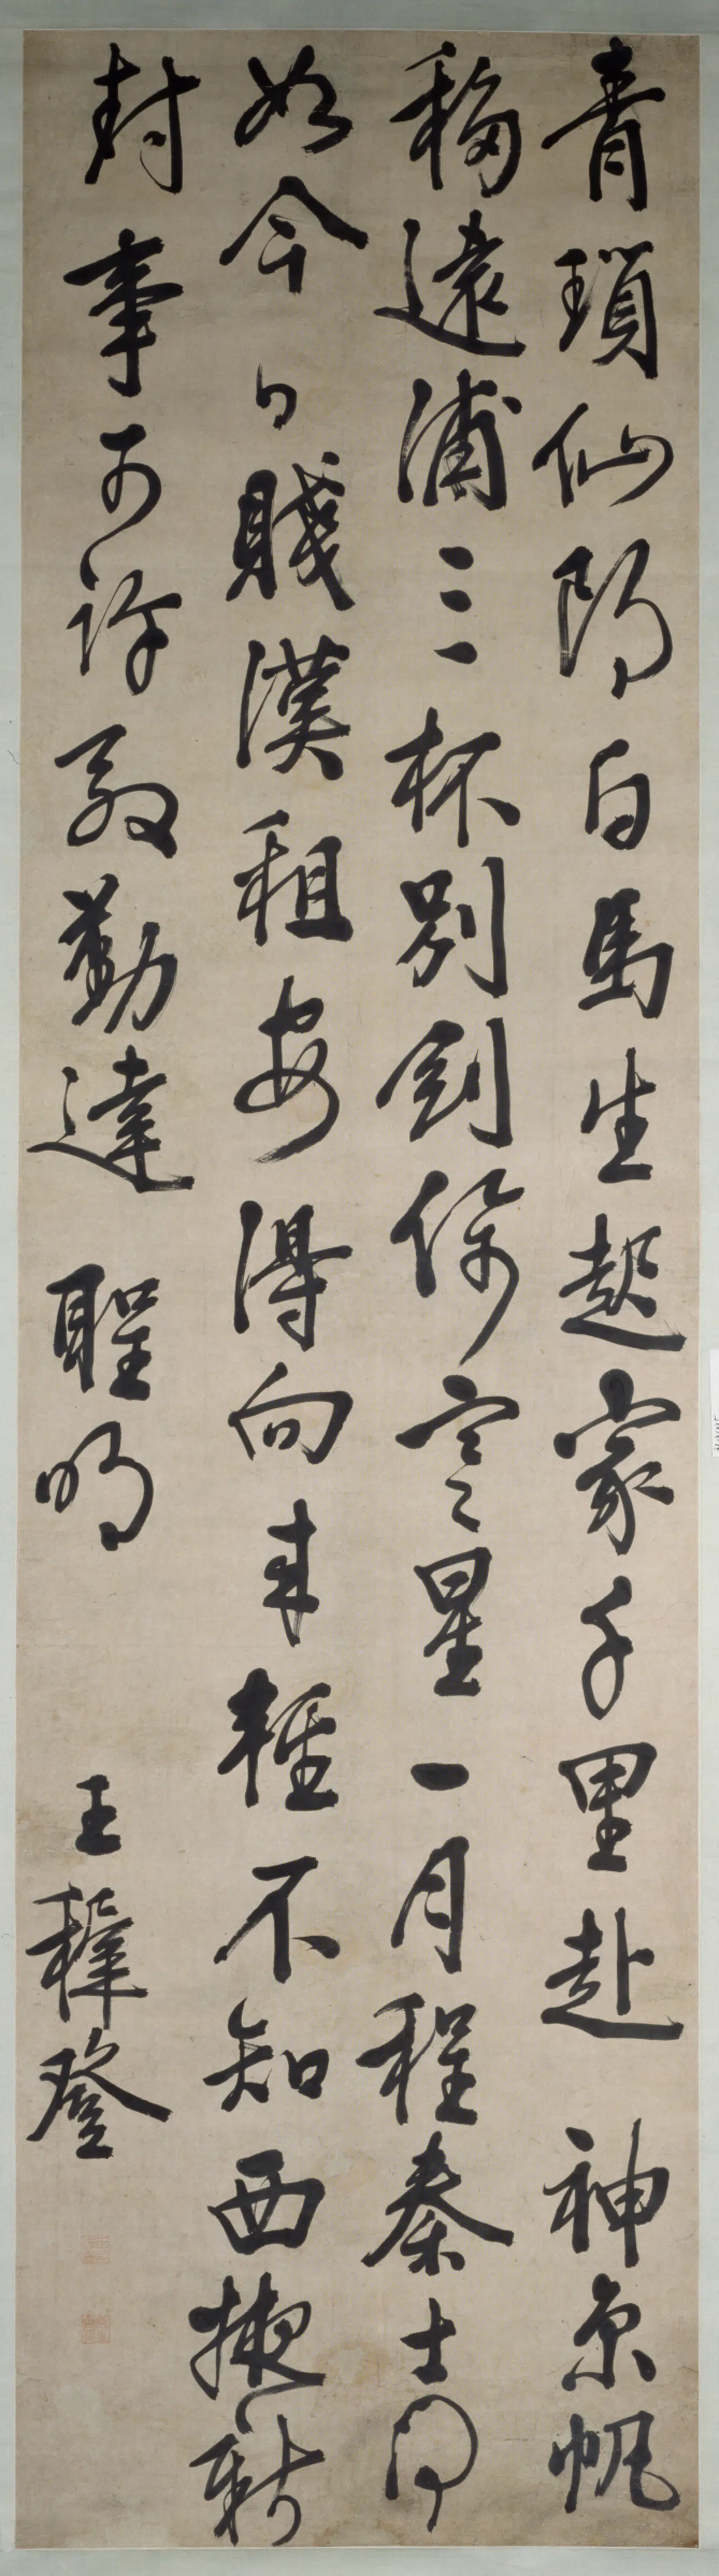 青瑣仙郎白馬生起家千里赴神京帆
移遠浦三杯別劍傍寒星一月程秦士何
如今日賤漢租安得向來輕不知西掖新
封事可許殷勤達聖明
王穉登